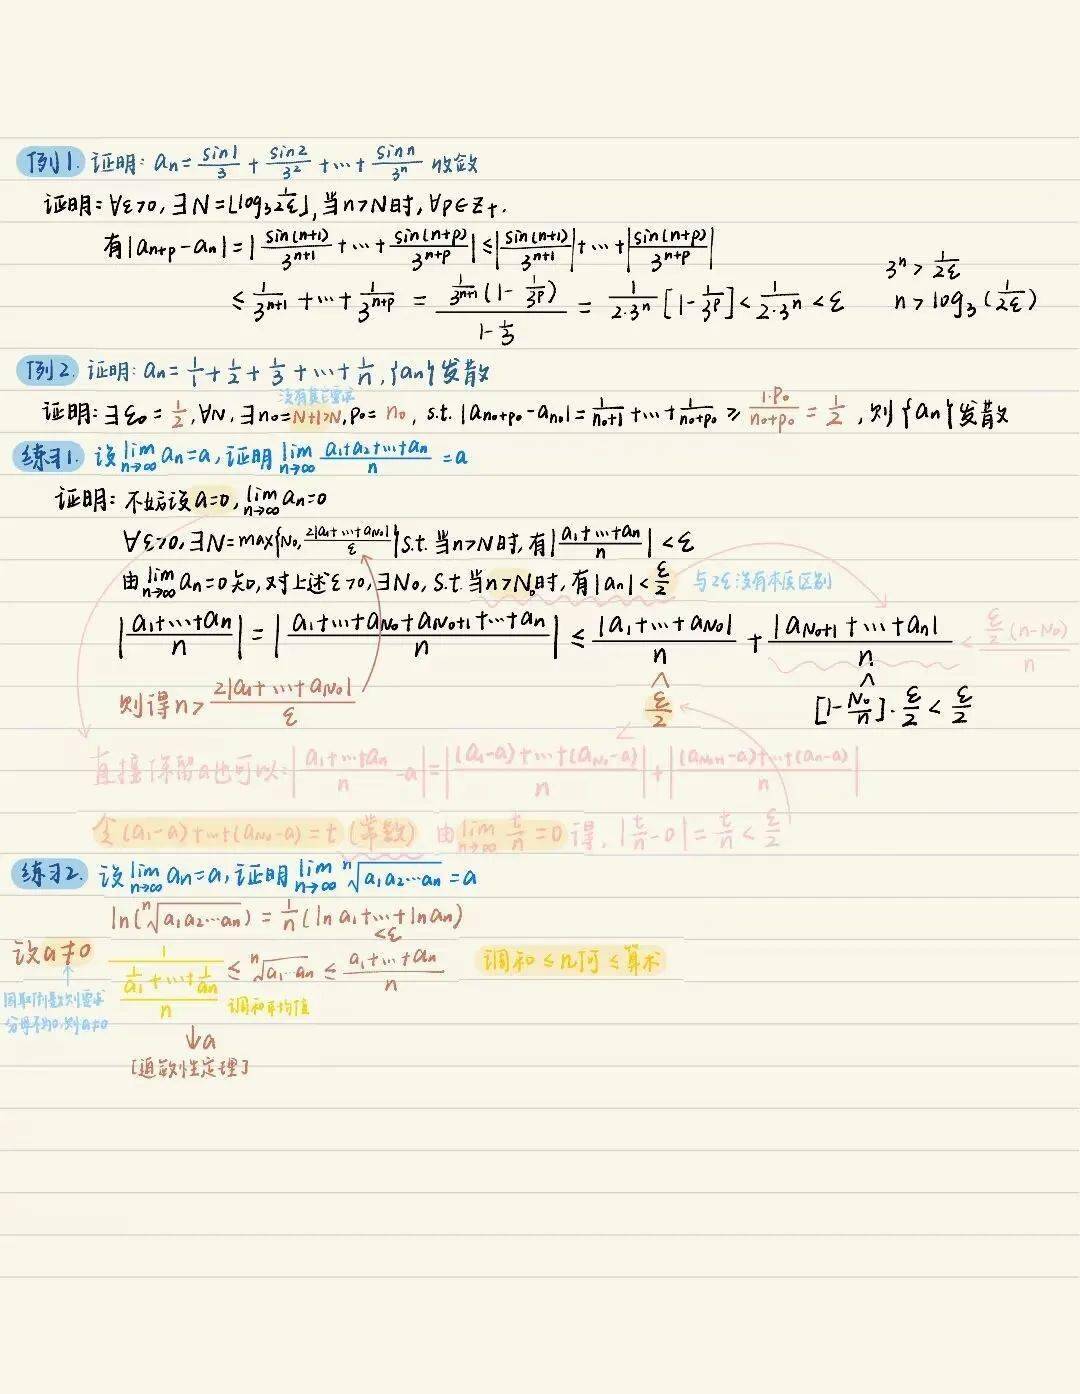 例1. 证明: aₙ = sin1/3 + sin2/3² + ⋯ + sinn/3ⁿ 收敛
证明: ∀ε>0, ∃N = ⌊log₃ 1/2ε⌋, 当n>N时, ∀p∈Z₊.
有|aₙ₊ₚ - aₙ| = | sin(n+1)/3ⁿ⁺¹ + ⋯ + sin(n+p)/3ⁿ⁺ᵖ | ≤ | sin(n+1)/3ⁿ⁺¹ | + ⋯ + | sin(n+p)/3ⁿ⁺ᵖ |
3ⁿ > 1/2ε
≤ 1/3ⁿ⁺¹ + ⋯ + 1/3ⁿ⁺ᵖ = 1/3ⁿ⁺¹ (1 - 1/3ᵖ) / (1 - 1/3) = 1/(2·3ⁿ) [1 - 1/3ᵖ] < 1/(2·3ⁿ) < ε
n > log₃(1/2ε)
例2. 证明: aₙ = 1/1 + 1/2 + 1/3 + ⋯ + 1/n, {aₙ} 发散
没有其它要求
证明: ∃ε₀ = 1/2, ∀N, ∃n₀ = N+1>N, p₀ = n₀, s.t. |aₙ₀₊ₚ₀ - aₙ₀| = 1/(n₀+1) + ⋯ + 1/(n₀+p₀) ≥ 1·p₀/(n₀+p₀) = 1/2, 则{aₙ}发散
练习1. 设 lim n→∞ aₙ = a, 证明 lim n→∞ (a₁+a₂+⋯+aₙ)/n = a
证明: 不妨设a=0, lim n→∞ aₙ = 0
∀ε>0, ∃N = max{N₀, 2|a₁+⋯+a_N₀|/ε} s.t. 当n>N时, 有|(a₁+⋯+aₙ)/n| < ε
由 lim n→∞ aₙ = 0知, 对上述ε>0, ∃N₀, s.t. 当n>N₀时, 有|aₙ| < ε/2 与2ε没有本质区别
|(a₁+⋯+aₙ)/n| = |(a₁+⋯+a_N₀+a_N₀₊₁+⋯+aₙ)/n| ≤ |a₁+⋯+a_N₀|/n + |a_N₀₊₁+⋯+aₙ|/n < ε/2 (n-N₀)/n
则得n > 2|a₁+⋯+a_N₀|/ε
∧ ε/2
∧ [1 - N₀/n]·ε/2 < ε/2
直接保留a也可以: |(a₁+⋯+aₙ)/n - a| = |((a₁-a)+⋯+(a_N₀-a))/n| + |((a_N₀₊₁-a)+⋯+(aₙ-a))/n|
≤
令(a₁-a)+⋯+(a_N₀-a) = t (常数) 由 lim n→∞ t/n = 0得, |t/n - 0| = t/n < ε/2
练习2. 设 lim n→∞ aₙ = a, 证明 lim n→∞ ⁿ√(a₁a₂⋯aₙ) = a
ln(ⁿ√(a₁a₂⋯aₙ)) = 1/n (ln a₁+⋯+ln aₙ)
<ε
设a≠0
1/((1/a₁+⋯+1/aₙ)/n) ≤ ⁿ√(a₁⋯aₙ) ≤ (a₁+⋯+aₙ)/n 调和 ≤ 几何 ≤ 算术
因取倒数则要求
分母不为0, 则a≠0
调和平均值
↓a
[迫敛性定理]